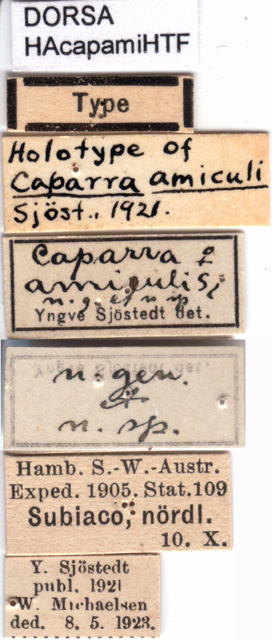 DORSA
HAcapamiHTF
Type
Holotype of
Caparra amiculi
Sjöst., 1921.
Caparra ♀
amiculi Sj.
n. g. et n. sp.
Yngve Sjöstedt det.
n. gen.
et
n. sp.
Hamb. S.-W.-Austr.
Exped. 1905. Stat.109
Subiaco, nördl.
10. X.
Y. Sjöstedt
publ. 1921
W. Michaelsen
ded. 8. 5. 1923.